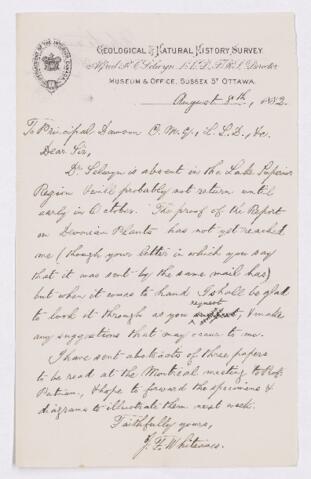 GEOLOGICAL & NATURAL HISTORY SURVEY.
Alfred R. C. Selwyn, L.L.D., F.R.S., Director
MUSEUM & OFFICE, SUSSEX ST OTTAWA.
August 8th, 1882.
To Principal Dawson C.M.G., L.L.D., &c.
Dear Sir,
Dr. Selwyn is absent in the Lake Superior
Region & will probably not return until
early in October. The proof of the Report
on Devonian Plants has not yet reached
me (though your letter in which you say
that it was sent by the same mail has)
but when it comes to hand I shall be glad
request
to look it through as you suggest, & make
any suggestions that may occur to me.
I have sent abstracts of three papers
to be read at the Montreal meeting to Prof.
Putnam, & hope to forward the specimens &
diagrams to illustrate them next week.
Faithfully yours,
J. F. Whiteaves.